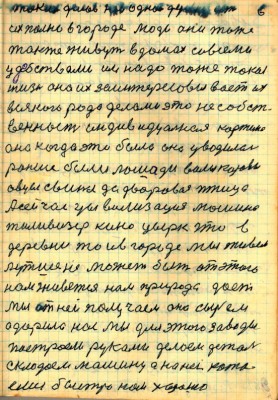 таких делов ни одной души нет 6
их полно в городе люди они тоже
также живут в домах со всеми
удобствами им надо тоже такая
жизнь она их заинтересовывает их
всякого рода делами это не собст-
венность индивидуальная картина
она когда это было она уводила
ранше были лошади валы коровы
овцы свиньи да дворовая птица
А сейчас цывилизация машина
тиливизер кино цырк это в
деревни то и в городе мы живем
лутше не может быт от этого
нам живется нам природа дает
мы от ней получаем она сырьем
одарила нас мы для этого заводы
построем руками делаем детали
складаем машину а на ней ката
емся быстро нам хорошо